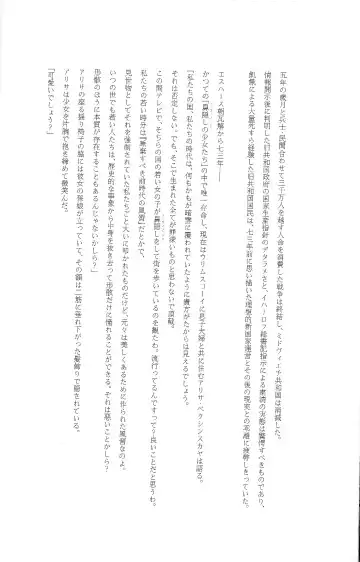 五年の歳月と兵士・民間合わせて三千万人を越す人命を消費した戦争は終結し、ミドヴィエチ共和国は消滅した。
情報開示後に判明した旧共和国政府の国家生産指針のデタラメさと、イハーロフ総書記指示による粛清の実態は驚愕すべきものであり、
飢餓による大量死すら経験した旧共和国国民は、七三年前に思い描いた理想的新国家運営とその後の現実との乖離に疲弊しきっていた。
エスハース朝瓦解から七三年――
かつての「目隠しの少女たち」の中で唯一存命し、現在はウリムスコーイに息子夫婦と共に住むアリサ・ベクシンスカヤは語る。
「私たちの国、私たちの時代は、何もかもが暗雲に覆われていたように貴方がたからは見えるでしょう。
それは否定しない。でも、そこで生まれた全てが罪深いものと思わないで頂戴。
この間テレビで、そちらの国の若い女の子が目隠しをして街を歩いているのを観たわ？流行ってるんですって？良いことだと思うわ。
私たちの若い時分は『廃棄すべき前時代の風習』だとかで、
見世物としてそれを強制されていた私たちごと大いに叩かれたものだけど、元々は美しくあるために作られた風習なのよ。
いつの世でも若い人たちは、歴史的な事象から中身を抜き去って形骸だけに憧れることができる。それは悪いことかしら？
形骸のほうに本質が存在することもあるんじゃないかしら？」
アリサの座る揺り椅子の脇には彼女の孫娘が立っていて、その顔は二筋に垂れ下がった髪飾りで隠されている。
アリサは少女を片腕で抱き締めて微笑んだ。
「可愛いでしょう？」